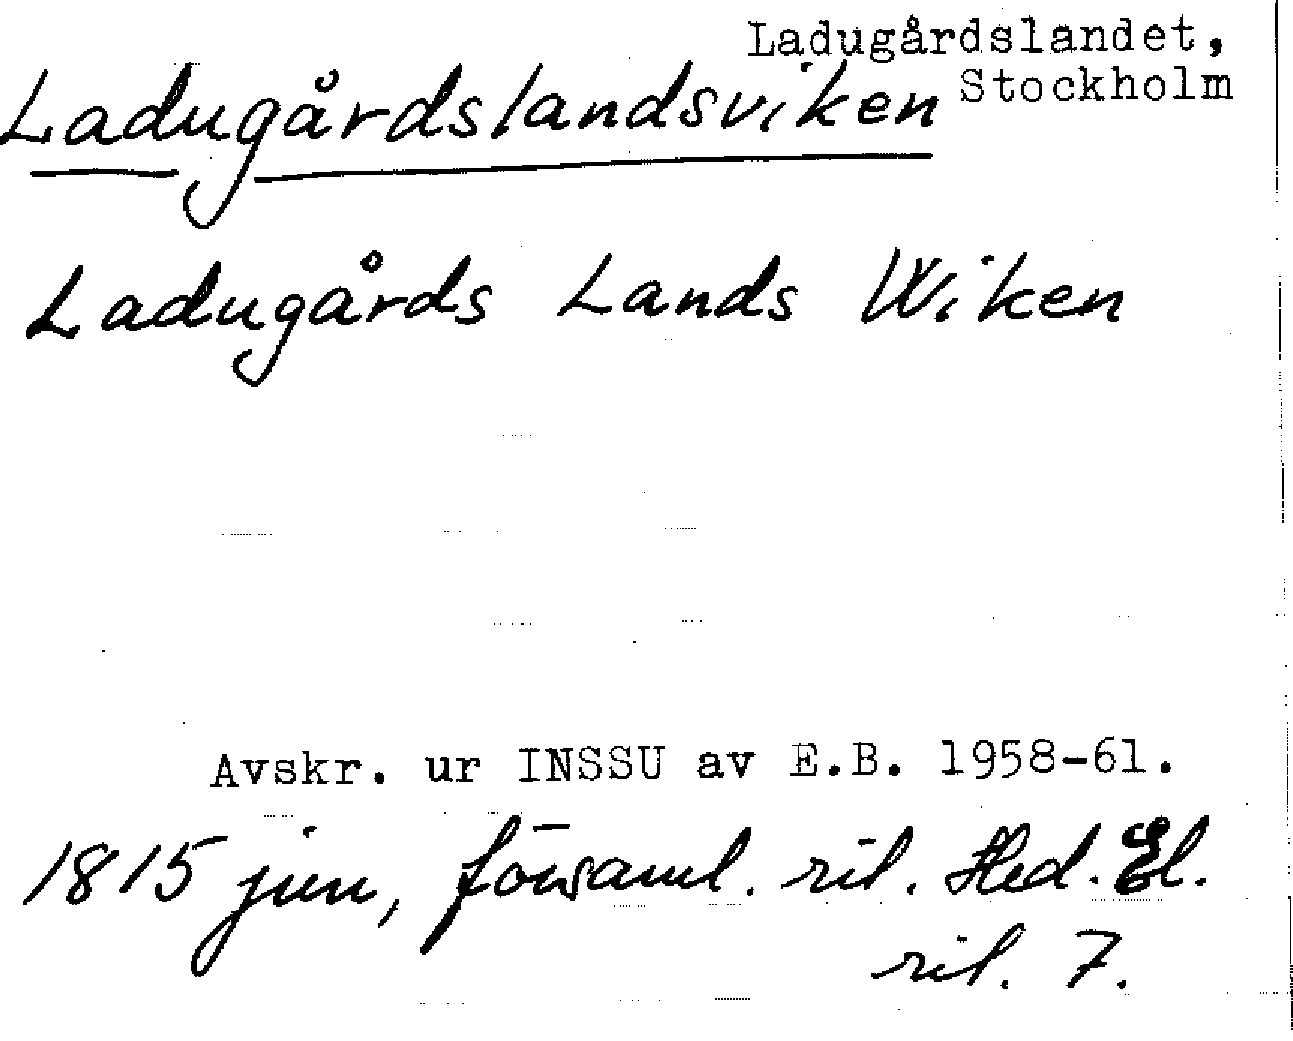 Ladugårdslandet,
Stockholm
Ladugårdslandsviken
Ladugårds Lands Wiken
Avskr. ur INSSU av E.B. 1958-61.
1815 jun, församl. ril. Hed. El.
ril. 7.